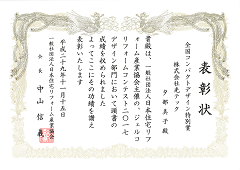 表彰状
全国コンパクトデザイン特別賞
株式会社光テック
夕部 美子 殿
貴殿は、一般社団法人日本住宅リフ
ォーム産業協会主催の、ジェルコ
リフォームコンテスト二〇一七
デザイン部門において頭書の
成績を収められました
よってここにその功績を讃え
表彰いたします
平成二十九年十一月十五日
一般社団法人日本住宅リフォーム産業協会
会長 中山信義